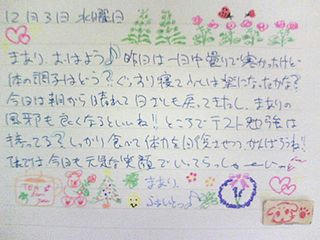 12月3日 水曜日
まあり、おはよう♪ 昨日は一日中曇りで寒かったけど
体の調子はどう？ぐっすり寝て少しは楽になったかな？
今日は朝から晴れて日ざしも戻ってきたし、まありの
風邪も良くなるといいね!! ところでテスト勉強は
持ってる？しっかり食べて体力を回復させつつ、がんばろうね!
では今日も元気な笑顔でいってらっしゃーい
TEA
まあり、
ふぁいとっ♪